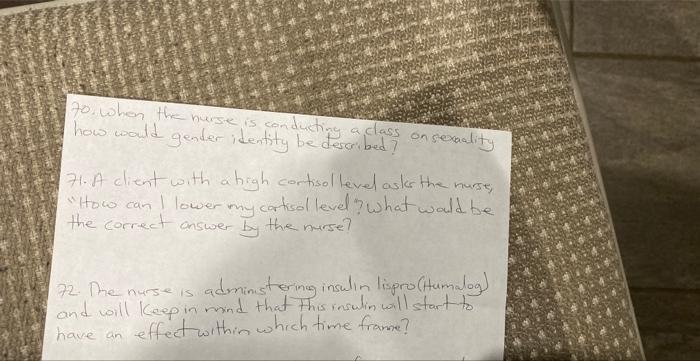 70. When the nurse is conducting a class on sexuality
how would gender identity be described?
71. A client with a high cortisol level asks the nurse,
"How can I lower my cortisol level"? What would be
the correct answer by the nurse?
72. The nurse is administering insulin lispro (Humalog)
and will keep in mind that this insulin will start to
have an effect within which time frame?